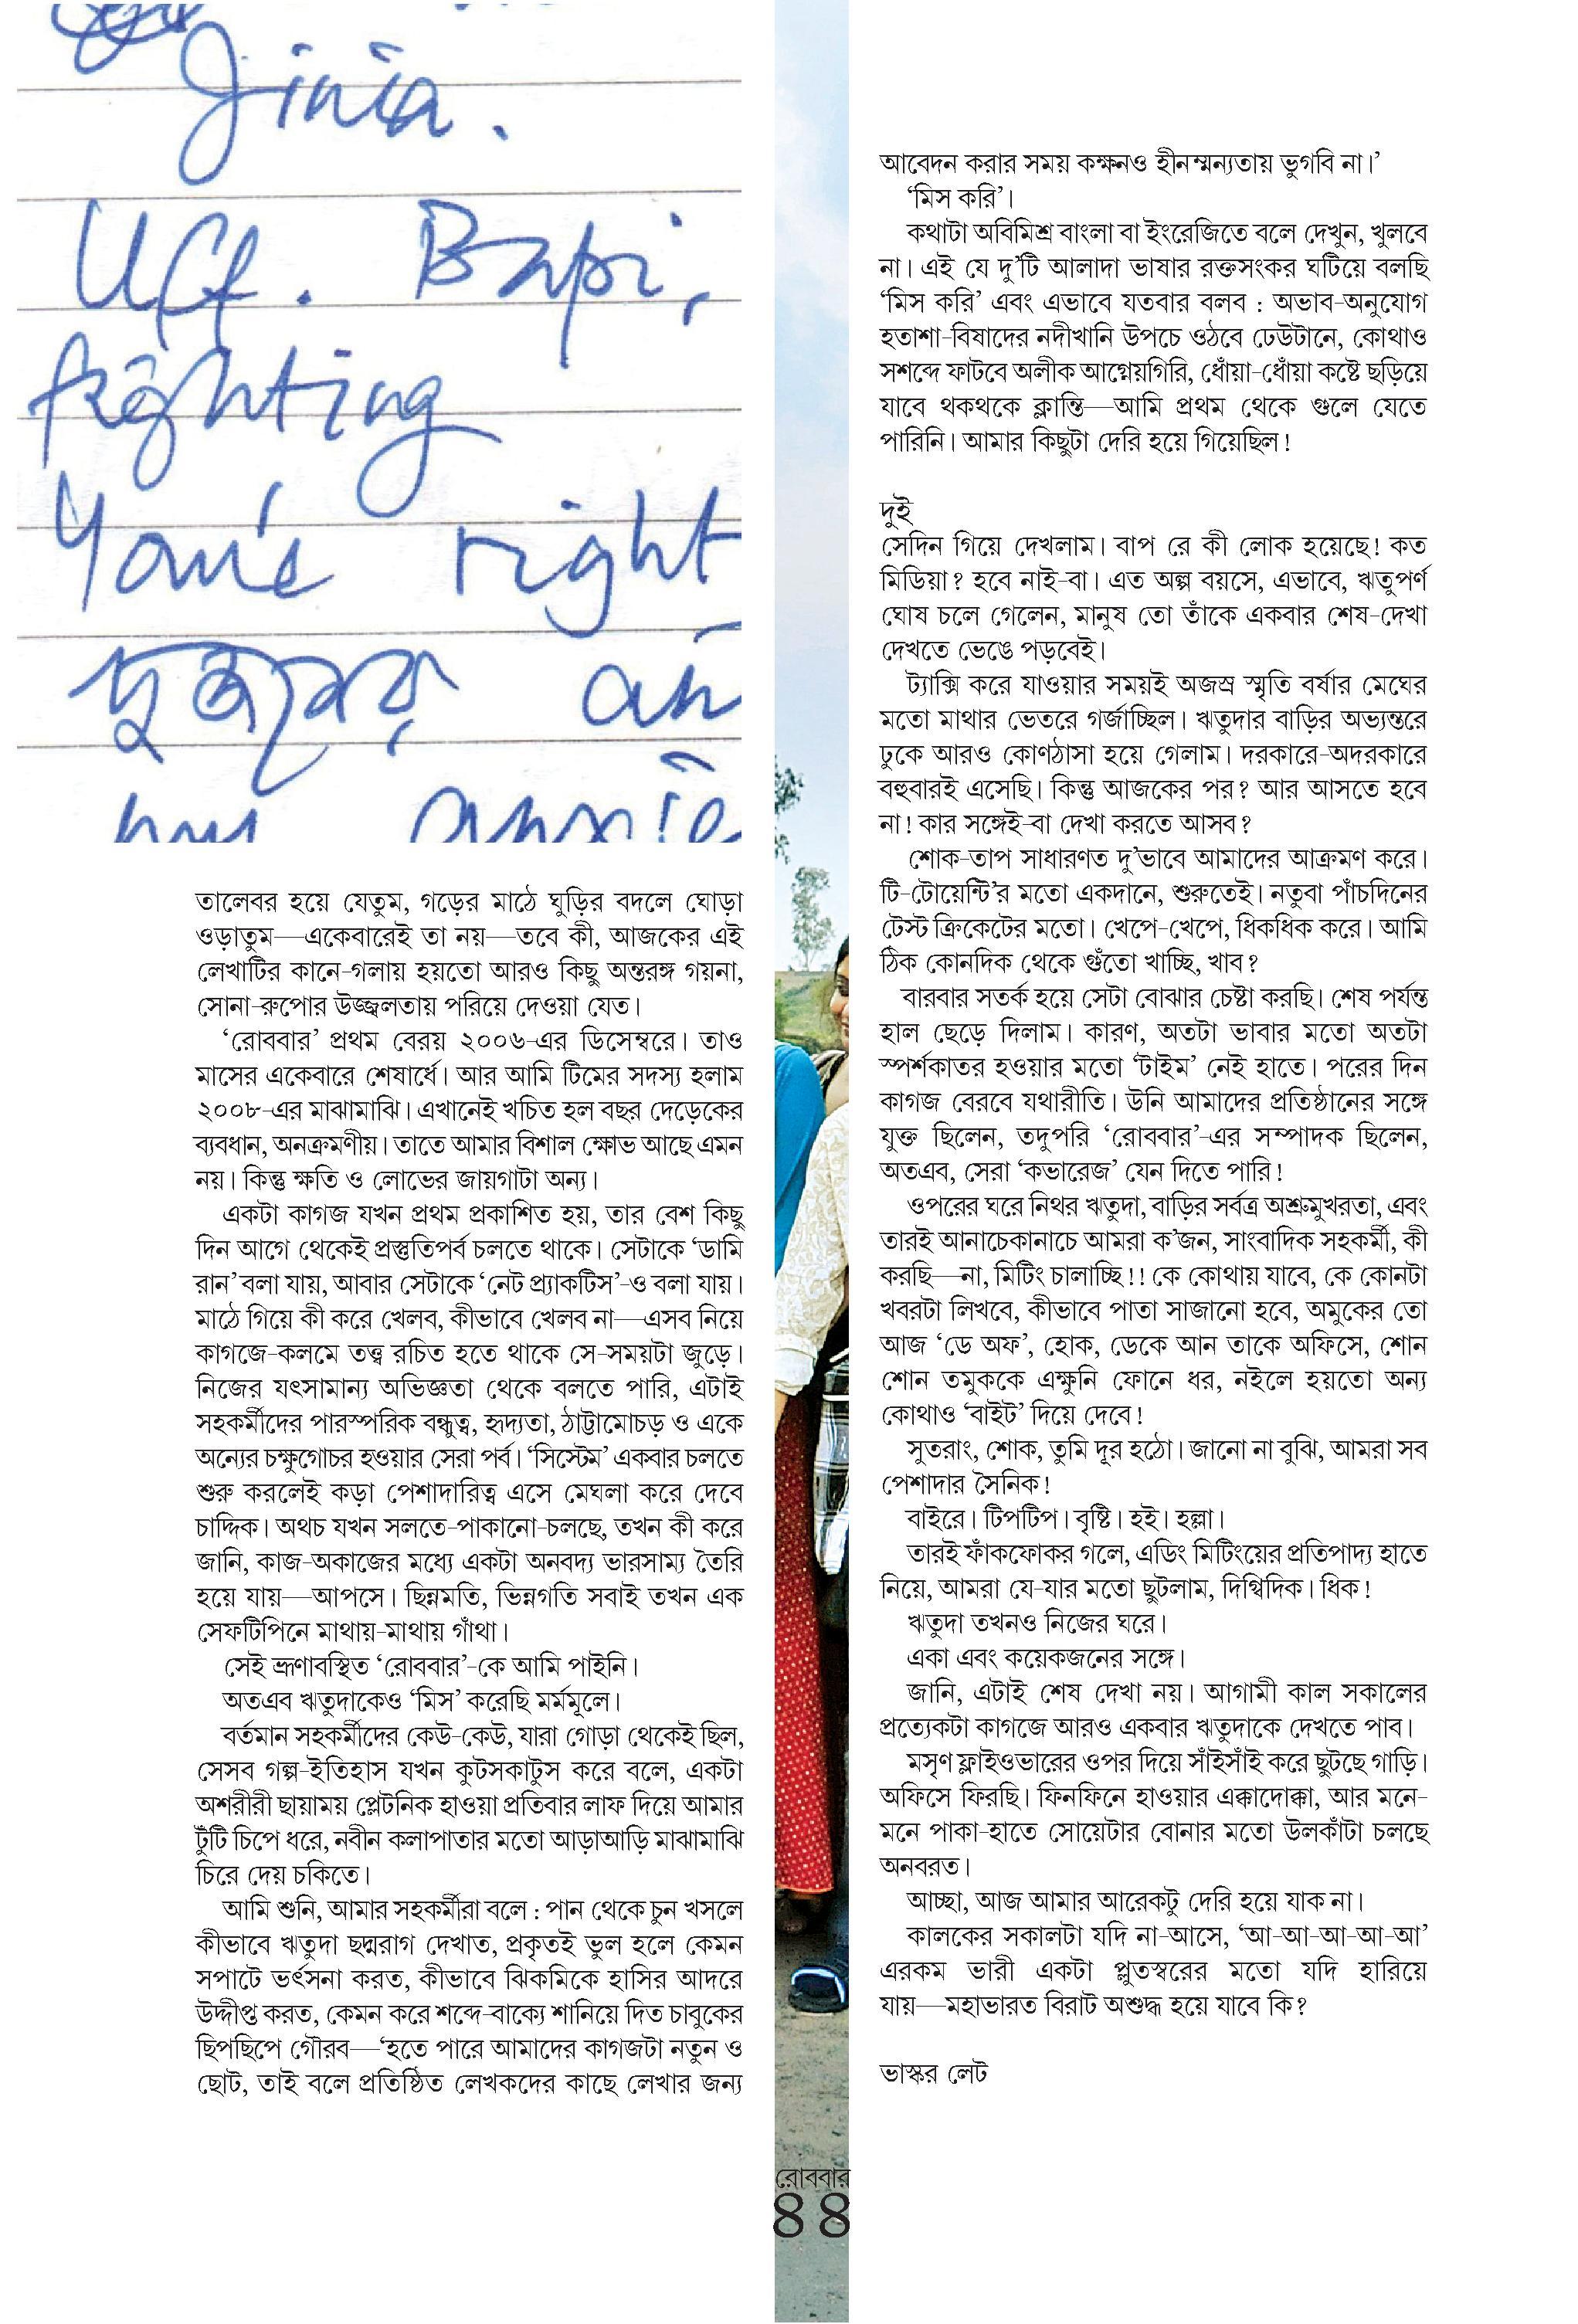 Jinia.
Uff. Bapi,
fighting
You're right
দুজনের an
তালেবর হয়ে যেতুম, গড়ের মাঠে ঘুড়ির বদলে ঘোড়া
ওড়াতুম—একেবারেই তা নয়—তবে কী, আজকের এই
লেখাটির কানে-গলায় হয়তো আরও কিছু অন্তরঙ্গ গয়না,
সোনা-রুপোর উজ্জ্বলতায় পরিয়ে দেওয়া যেত।
‘রোববার’ প্রথম বেরয় ২০০৬-এর ডিসেম্বরে। তাও
মাসের একেবারে শেষার্ধে। আর আমি টিমের সদস্য হলাম
২০০৮-এর মাঝামাঝি। এখানেই খচিত হল বছর দেড়েকের
ব্যবধান, অনক্রমণীয়। তাতে আমার বিশাল ক্ষোভ আছে এমন
নয়। কিন্তু ক্ষতি ও লোভের জায়গাটা অন্য।
একটা কাগজ যখন প্রথম প্রকাশিত হয়, তার বেশ কিছু
দিন আগে থেকেই প্রস্তুতিপর্ব চলতে থাকে। সেটাকে ‘ডামি
রান’ বলা যায়, আবার সেটাকে ‘নেট প্র্যাকটিস’-ও বলা যায়।
মাঠে গিয়ে কী করে খেলব, কীভাবে খেলব না—এসব নিয়ে
কাগজে-কলমে তত্ত্ব রচিত হতে থাকে সে-সময়টা জুড়ে।
নিজের যৎসামান্য অভিজ্ঞতা থেকে বলতে পারি, এটাই
সহকর্মীদের পারস্পরিক বন্ধুত্ব, হৃদ্যতা, ঠাট্টামোচড় ও একে
অন্যের চক্ষুগোচর হওয়ার সেরা পর্ব। ‘সিস্টেম’ একবার চলতে
শুরু করলেই কড়া পেশাদারিত্ব এসে মেঘলা করে দেবে
চাদ্দিক। অথচ যখন সলতে-পাকানো-চলছে, তখন কী করে
জানি, কাজ-অকাজের মধ্যে একটা অনবদ্য ভারসাম্য তৈরি
হয়ে যায়—আপসে। ছিন্নমতি, ভিন্নগতি সবাই তখন এক
সেফটিপিনে মাথায়-মাথায় গাঁথা।
সেই ভ্রূণাবস্থিত ‘রোববার’-কে আমি পাইনি।
অতএব ঋতুদাকেও ‘মিস’ করেছি মর্মমূলে।
বর্তমান সহকর্মীদের কেউ-কেউ, যারা গোড়া থেকেই ছিল,
সেসব গল্প-ইতিহাস যখন কুটসকাটুস করে বলে, একটা
অশরীরী ছায়াময় প্লেটনিক হাওয়া প্রতিবার লাফ দিয়ে আমার
টুঁটি চিপে ধরে, নবীন কলাপাতার মতো আড়াআড়ি মাঝামাঝি
চিরে দেয় চকিতে।
আমি শুনি, আমার সহকর্মীরা বলে : পান থেকে চুন খসলে
কীভাবে ঋতুদা ছদ্মরাগ দেখাত, প্রকৃতই ভুল হলে কেমন
সপাটে ভর্ৎসনা করত, কীভাবে ঝিকমিকে হাসির আদরে
উদ্দীপ্ত করত, কেমন করে শব্দে-বাক্যে শানিয়ে দিত চাবুকের
ছিপছিপে গৌরব—‘হতে পারে আমাদের কাগজটা নতুন ও
ছোট, তাই বলে প্রতিষ্ঠিত লেখকদের কাছে লেখার জন্য
আবেদন করার সময় কক্ষনও হীনম্মন্যতায় ভুগবি না।’
‘মিস করি’।
কথাটা অবিমিশ্র বাংলা বা ইংরেজিতে বলে দেখুন, খুলবে
না। এই যে দু’টি আলাদা ভাষার রক্তসংকর ঘটিয়ে বলছি
‘মিস করি’ এবং এভাবে যতবার বলব : অভাব-অনুযোগ
হতাশা-বিষাদের নদীখানি উপচে ওঠবে ঢেউটানে, কোথাও
সশব্দে ফাটবে অলীক আগ্নেয়গিরি, ধোঁয়া-ধোঁয়া কষ্টে ছড়িয়ে
যাবে থকথকে ক্লান্তি—আমি প্রথম থেকে গুলে যেতে
পারিনি। আমার কিছুটা দেরি হয়ে গিয়েছিল!
দুই
সেদিন গিয়ে দেখলাম। বাপ রে কী লোক হয়েছে! কত
মিডিয়া? হবে নাই-বা। এত অল্প বয়সে, এভাবে, ঋতুপর্ণ
ঘোষ চলে গেলেন, মানুষ তো তাঁকে একবার শেষ-দেখা
দেখতে ভেঙে পড়বেই।
ট্যাক্সি করে যাওয়ার সময়ই অজস্র স্মৃতি বর্ষার মেঘের
মতো মাথার ভেতরে গর্জাচ্ছিল। ঋতুদার বাড়ির অভ্যন্তরে
ঢুকে আরও কোণঠাসা হয়ে গেলাম। দরকারে-অদরকারে
বহুবারই এসেছি। কিন্তু আজকের পর? আর আসতে হবে
না! কার সঙ্গেই-বা দেখা করতে আসব?
শোক-তাপ সাধারণত দু’ভাবে আমাদের আক্রমণ করে।
টি-টোয়েন্টি’র মতো একদানে, শুরুতেই। নতুবা পাঁচদিনের
টেস্ট ক্রিকেটের মতো। খেপে-খেপে, ধিকধিক করে। আমি
ঠিক কোনদিক থেকে গুঁতো খাচ্ছি, খাব?
বারবার সতর্ক হয়ে সেটা বোঝার চেষ্টা করছি। শেষ পর্যন্ত
হাল ছেড়ে দিলাম। কারণ, অতটা ভাবার মতো অতটা
স্পর্শকাতর হওয়ার মতো ‘টাইম’ নেই হাতে। পরের দিন
কাগজ বেরবে যথারীতি। উনি আমাদের প্রতিষ্ঠানের সঙ্গে
যুক্ত ছিলেন, তদুপরি ‘রোববার’-এর সম্পাদক ছিলেন,
অতএব, সেরা ‘কভারেজ’ যেন দিতে পারি!
ওপরের ঘরে নিথর ঋতুদা, বাড়ির সর্বত্র অশ্রুমুখরতা, এবং
তারই আনাচেকানাচে আমরা ক’জন, সাংবাদিক সহকর্মী, কী
করছি—না, মিটিং চালাচ্ছি!! কে কোথায় যাবে, কে কোনটা
খবরটা লিখবে, কীভাবে পাতা সাজানো হবে, অমুকের তো
আজ ‘ডে অফ’, হোক, ডেকে আন তাকে অফিসে, শোন
শোন তমুককে এক্ষুনি ফোনে ধর, নইলে হয়তো অন্য
কোথাও ‘বাইট’ দিয়ে দেবে!
সুতরাং, শোক, তুমি দূর হঠো। জানো না বুঝি, আমরা সব
পেশাদার সৈনিক!
বাইরে। টিপটিপ। বৃষ্টি। হই। হল্লা।
তারই ফাঁকফোকর গলে, এডিং মিটিংয়ের প্রতিপাদ্য হাতে
নিয়ে, আমরা যে-যার মতো ছুটলাম, দিগ্বিদিক। ধিক!
ঋতুদা তখনও নিজের ঘরে।
একা এবং কয়েকজনের সঙ্গে।
জানি, এটাই শেষ দেখা নয়। আগামী কাল সকালের
প্রত্যেকটা কাগজে আরও একবার ঋতুদাকে দেখতে পাব।
মসৃণ ফ্লাইওভারের ওপর দিয়ে সাঁইসাঁই করে ছুটছে গাড়ি।
অফিসে ফিরছি। ফিনফিনে হাওয়ার এক্কাদোক্কা, আর মনে-
মনে পাকা-হাতে সোয়েটার বোনার মতো উলকাঁটা চলছে
অনবরত।
আচ্ছা, আজ আমার আরেকটু দেরি হয়ে যাক না।
কালকের সকালটা যদি না-আসে, ‘আ-আ-আ-আ-আ’
এরকম ভারী একটা প্লুতস্বরের মতো যদি হারিয়ে
যায়—মহাভারত বিরাট অশুদ্ধ হয়ে যাবে কি?
ভাস্কর লেট
রোববার
৪৪